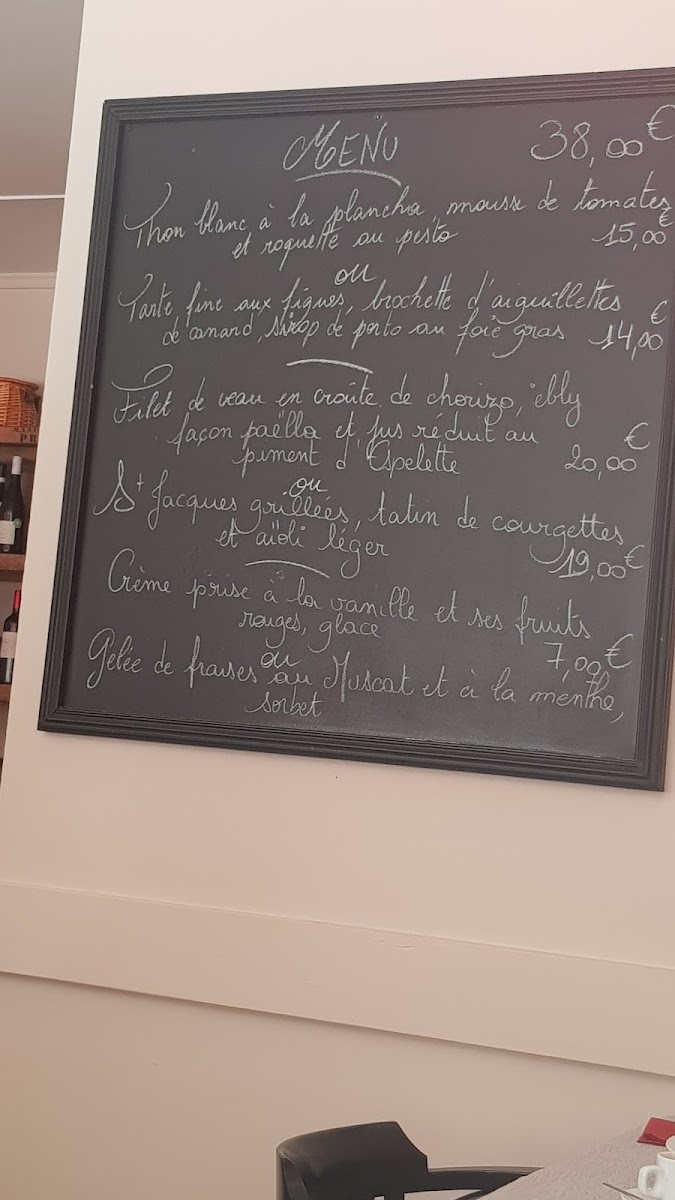 MENU 38,00 €
Thon blanc à la plancha, mousse de tomates
et roquette au pesto 15,00 €
ou
Tarte fine aux figues, brochette d'aiguillettes
de canard, sirop de porto au foie gras 14,00 €
Filet de veau en croûte de chorizo, ebly
façon paëlla et jus réduit au
piment d'Espelette 20,00 €
ou
St Jacques grillées, tatin de courgettes
et aïoli léger 19,00 €
Crème prise à la vanille et ses fruits
rouges, glace 7,00 €
ou
Gelée de fraises au Muscat et à la menthe,
sorbet